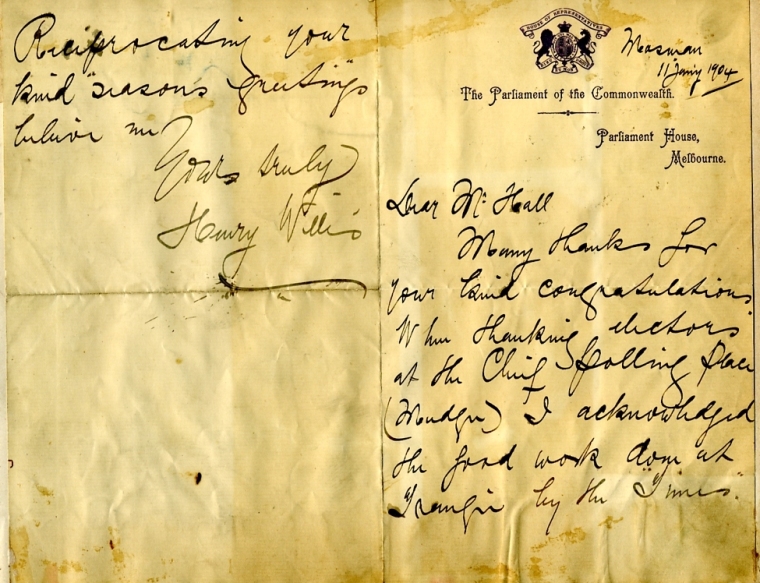 HOUSE OF REPRESENTATIVES
Mosman
11 Jany 1904
The Parliament of the Commonwealth.
Parliament House,
Melbourne.
Dear Mr Hall
Many thanks for
your kind congratulations.
When thanking electors
at the Chief Polling Place
(Mudgee) I acknowledged
the good work done at
Trangie by the "Times".
Reciprocating your
kind "seasons greetings"
believe me
Yours truly
Henry Willis